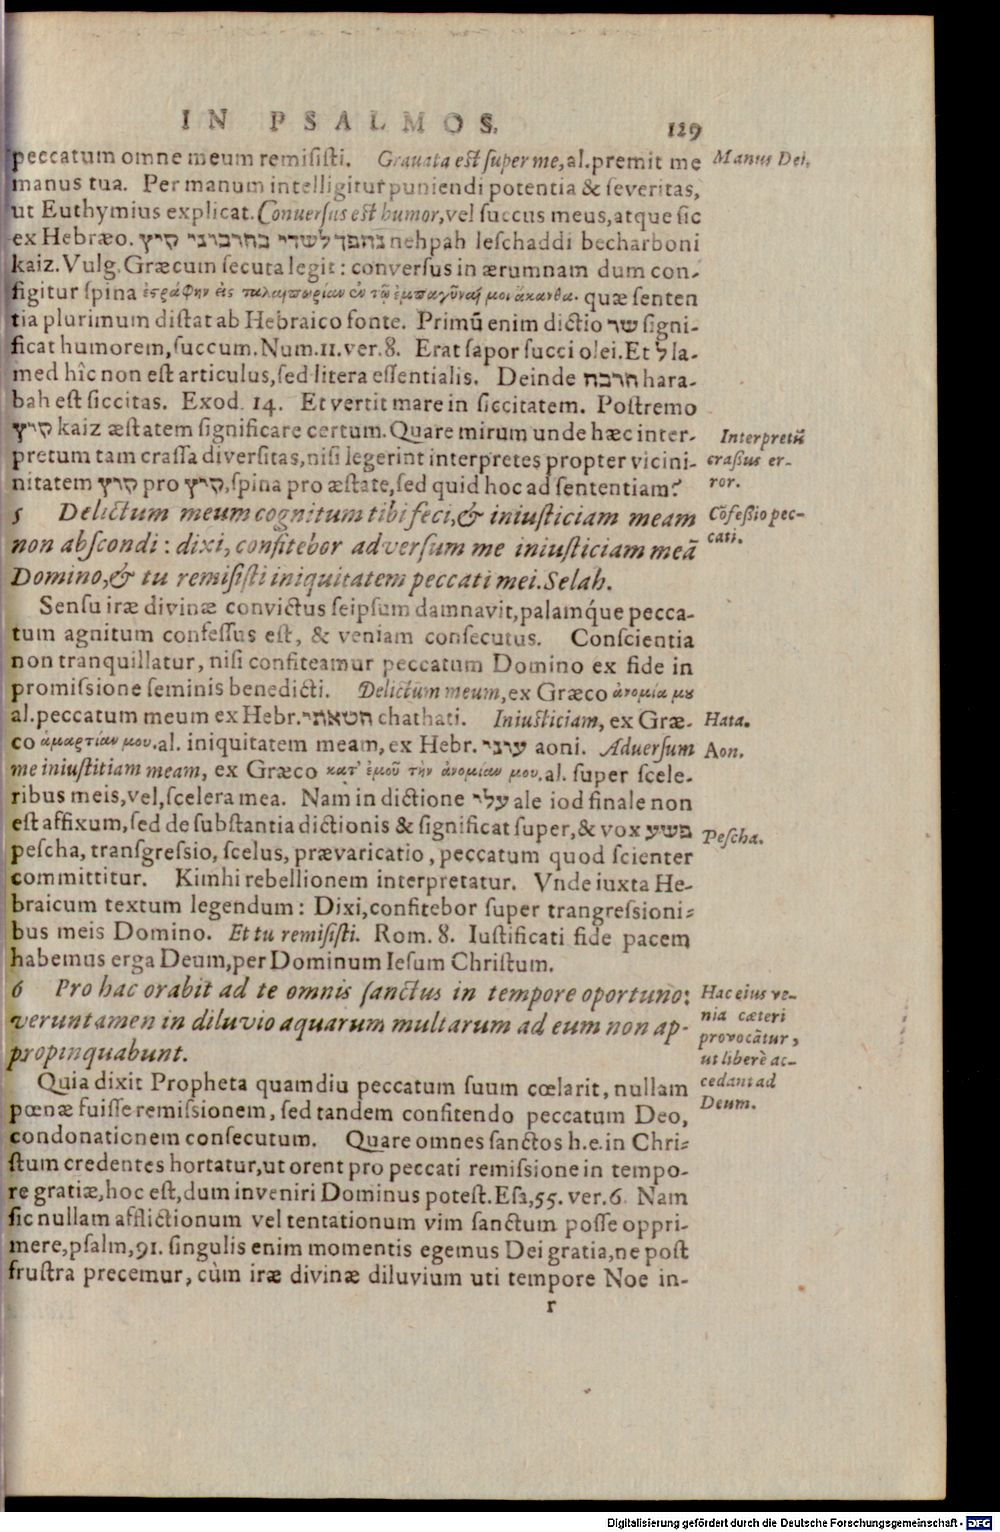 IN PSALMOS. 129
peccatum omne meum remiſiſti. Grauata eſt ſuper me, al. premit me
Manus Dei.
manus tua. Per manum intelligitur puniendi potentia & ſeveritas,
ut Euthymius explicat. Converſus eſt humor, vel ſuccus meus, atque ſic
ex Hebræo. נהפך לשדי בחרבני קיץ nehpah leſchaddi becharboni
kaiz. Vulg. Græcum ſecuta legit: converſus in ærumnam dum con-
figitur ſpina quæ ſenten
tia plurimum diſtat ab Hebraico fonte. Primũ enim dictio שד ſigni-
ficat humorem, ſuccum. Num. 11. ver. 8. Erat ſapor ſucci olei. Et ל la-
med hîc non eſt articulus, ſed litera eſſentialis. Deinde חרבה hara-
bah eſt ſiccitas. Exod. 14. Et vertit mare in ſiccitatem. Poſtremo
קיץ kaiz æſtatem ſignificare certum. Quare mirum unde hæc inter-
Interpretũ
pretum tam craſſa diverſitas, niſi legerint interpretes propter vicini-
craßus er-
nitatem קוץ pro קיץ, ſpina pro æſtate, ſed quid hoc ad ſententiam?
ror.
5 Delictum meum cognitum tibi feci, & iniuſticiam meam
Cõfeßio pec-
non abſcondi: dixi, confitebor adverſum me iniuſticiam meã
cati.
Domino, & tu remiſiſti iniquitatem peccati mei. Selah.
Senſu iræ divinæ convictus ſeipſum damnavit, palamq́ue pecca-
tum agnitum confeſſus eſt, & veniam conſecutus. Conſcientia
non tranquillatur, niſi confiteamur peccatum Domino ex fide in
promiſsione ſeminis benedicti. Delictum meum, ex Græco ἀνομία μου
al. peccatum meum ex Hebr. חטאתי chathati. Iniuſticiam, ex Græ-
Hata.
co ἁμαρτίαν μου. al. iniquitatem meam, ex Hebr. עוני aoni. Adverſum
Aon.
me iniuſtitiam meam, ex Græco κατ' ἐμοῦ τὴν ἀνομίαν μου. al. ſuper ſcele-
ribus meis, vel, ſcelera mea. Nam in dictione עלי ale iod finale non
eſt affixum, ſed de ſubſtantia dictionis & ſignificat ſuper, & vox פשע
Peſcha.
peſcha, tranſgreſsio, ſcelus, prævaricatio, peccatum quod ſcienter
committitur. Kimhi rebellionem interpretatur. Vnde iuxta He-
braicum textum legendum: Dixi, confitebor ſuper trangreſsioni-
bus meis Domino. Et tu remiſiſti. Rom. 8. Iuſtificati fide pacem
habemus erga Deum, per Dominum Ieſum Chriſtum.
6 Pro hac orabit ad te omnis ſanctus in tempore oportuno:
Hac eius ve-
veruntamen in diluvio aquarum multarum ad eum non ap-
nia cæteri
propinquabunt.
provocãtur,
ut liberè ac-
Quia dixit Propheta quamdiu peccatum ſuum cœlarit, nullam
cedant ad
pœnæ fuiſſe remiſsionem, ſed tandem confitendo peccatum Deo,
Deum.
condonationem conſecutum. Quare omnes ſanctos h.e. in Chri-
ſtum credentes hortatur, ut orent pro peccati remiſsione in tempo-
re gratiæ, hoc eſt, dum inveniri Dominus poteſt. Eſa, 55. ver. 6. Nam
ſic nullam afflictionum vel tentationum vim ſanctum poſſe oppri-
mere, pſalm, 91. ſingulis enim momentis egemus Dei gratia, ne poſt
fruſtra precemur, cùm iræ divinæ diluvium uti tempore Noe in-
r
Digitalisierung gefördert durch die Deutsche Forschungsgemeinschaft - DFG